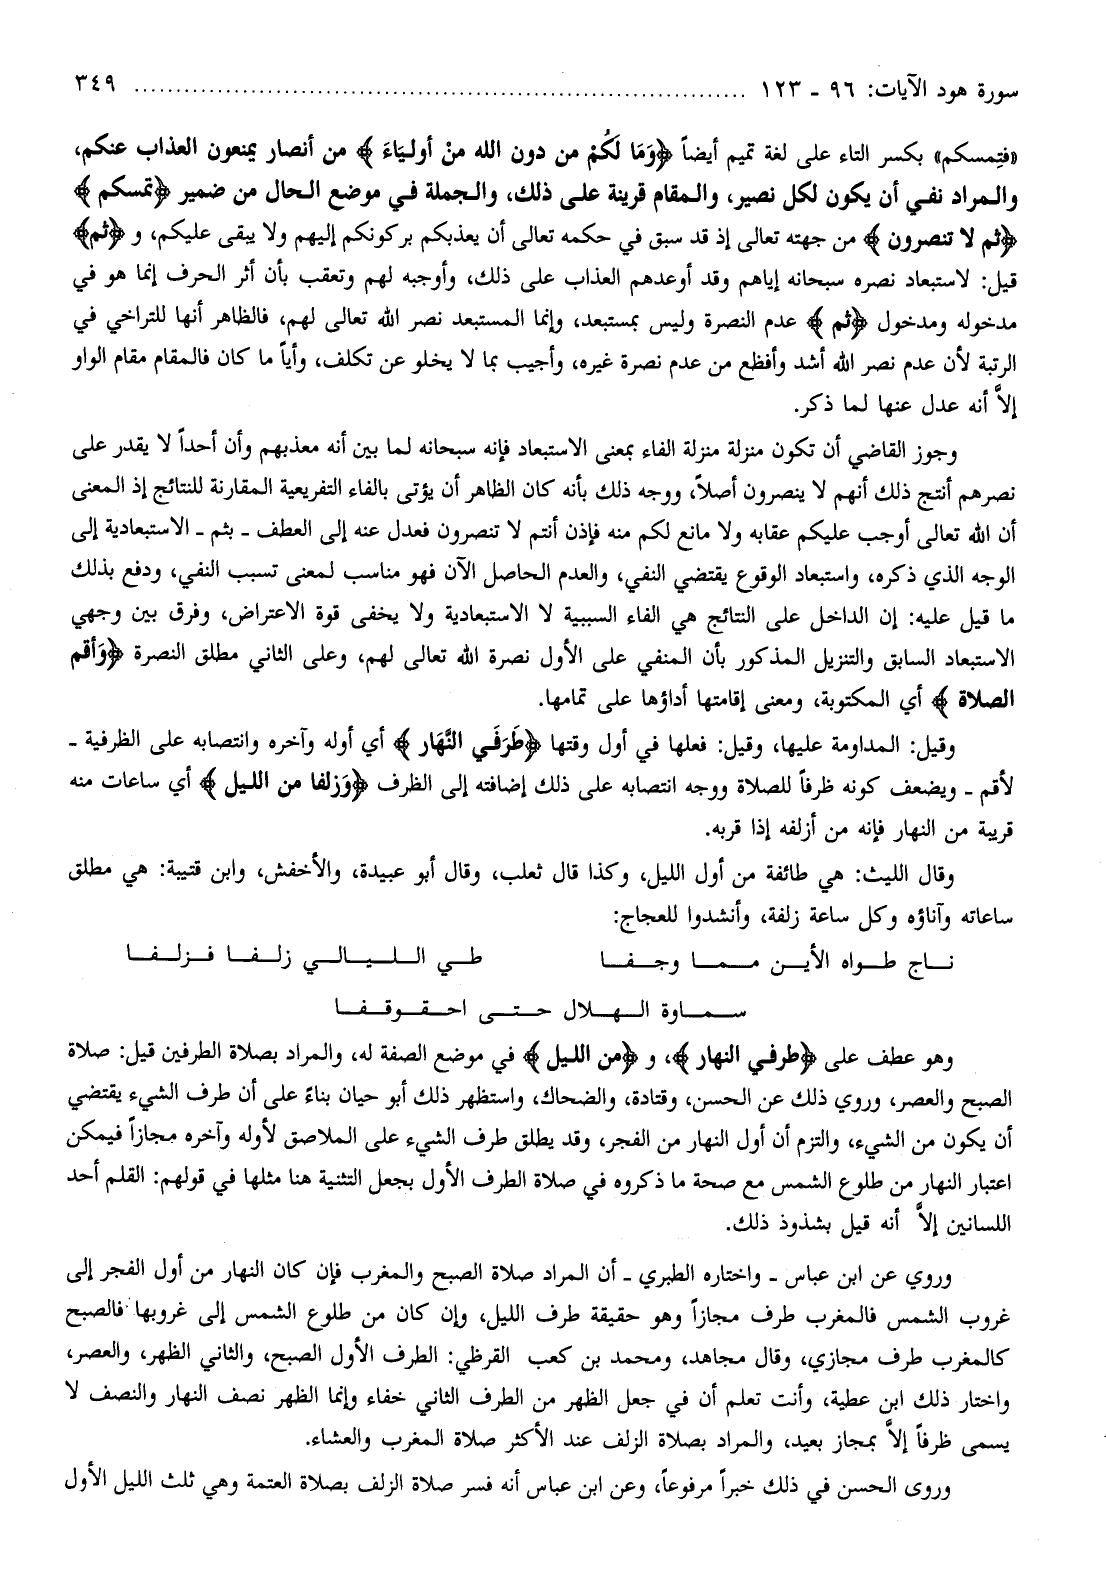 سورة هود الآيات: ٩٦ - ١٢٣ ........................................ ٣٤٩
«فتِمسكم» بكسر التاء على لغة تميم أيضاً ﴿وَمَا لَكُمْ من دون الله منْ أوليَاءَ﴾ من أنصار يمنعون العذاب عنكم،
والمراد نفي أن يكون لكل نصير، والمقام قرينة على ذلك، والجملة في موضع الحال من ضمير ﴿تمسكم﴾
﴿ثم لا تنصرون﴾ من جهته تعالى إذ قد سبق في حكمه تعالى أن يعذبكم بركونكم إليهم ولا يبقى عليكم، و ﴿ثم﴾
قيل: لاستبعاد نصره سبحانه إياهم وقد أوعدهم العذاب على ذلك، وأوجبه لهم وتعقب بأن أثر الحرف إنما هو في
مدخوله ومدخول ﴿ثم﴾ عدم النصرة وليس بمستبعد، وإنما المستبعد نصر الله تعالى لهم، فالظاهر أنها للتراخي في
الرتبة لأن عدم نصر الله أشد وأفظع من عدم نصرة غيره، وأجيب بما لا يخلو عن تكلف، وأياً ما كان فالمقام مقام الواو
إلاَّ أنه عدل عنها لما ذكر.
وجوز القاضي أن تكون منزلة منزلة الفاء بمعنى الاستبعاد فإنه سبحانه لما بين أنه معذبهم وأن أحداً لا يقدر على
نصرهم أنتج ذلك أنهم لا ينصرون أصلاً، ووجه ذلك بأنه كان الظاهر أن يؤتى بالفاء التفريعية المقارنة للنتائج إذ المعنى
أن الله تعالى أوجب عليكم عقابه ولا مانع لكم منه فإذن أنتم لا تنصرون فعدل عنه إلى العطف - بثم - الاستبعادية إلى
الوجه الذي ذكره، واستبعاد الوقوع يقتضي النفي، والعدم الحاصل الآن فهو مناسب لمعنى تسبب النفي، ودفع بذلك
ما قيل عليه: إن الداخل على النتائج هي الفاء السببية لا الاستبعادية ولا يخفى قوة الاعتراض، وفرق بين وجهي
الاستبعاد السابق والتنزيل المذكور بأن المنفي على الأول نصرة الله تعالى لهم، وعلى الثاني مطلق النصرة ﴿وَأقم
الصلاة﴾ أي المكتوبة، ومعنى إقامتها أداؤها على تمامها.
وقيل: المداومة عليها، وقيل: فعلها في أول وقتها ﴿طَرَفَي النَّهَار﴾ أي أوله وآخره وانتصابه على الظرفية -
لأقم - ويضعف كونه ظرفاً للصلاة ووجه انتصابه على ذلك إضافته إلى الظرف ﴿وَزلفا من الليل﴾ أي ساعات منه
قريبة من النهار فإنه من أزلفه إذا قربه.
وقال الليث: هي طائفة من أول الليل، وكذا قال ثعلب، وقال أبو عبيدة، والأخفش، وابن قتيبة: هي مطلق
ساعاته وآناؤه وكل ساعة زلفة، وأنشدوا للعجاج:
نـاج طـواه الأيـن مـمـا وجـفـا          طـي الـلـيـالـي زلـفـا فـزلـفـا
سـمـاوة الـهـلال حـتـى احـقـوقـفـا
وهو عطف على ﴿طرفي النهار﴾، و ﴿من الليل﴾ في موضع الصفة له، والمراد بصلاة الطرفين قيل: صلاة
الصبح والعصر، وروي ذلك عن الحسن، وقتادة، والضحاك، واستظهر ذلك أبو حيان بناءً على أن طرف الشيء يقتضي
أن يكون من الشيء، والتزم أن أول النهار من الفجر، وقد يطلق طرف الشيء على الملاصق لأوله وآخره مجازاً فيمكن
اعتبار النهار من طلوع الشمس مع صحة ما ذكروه في صلاة الطرف الأول بجعل التثنية هنا مثلها في قولهم: القلم أحد
اللسانين إلاَّ أنه قيل بشذوذ ذلك.
وروي عن ابن عباس - واختاره الطبري - أن المراد صلاة الصبح والمغرب فإن كان النهار من أول الفجر إلى
غروب الشمس فالمغرب طرف مجازاً وهو حقيقة طرف الليل، وإن كان من طلوع الشمس إلى غروبها فالصبح
كالمغرب طرف مجازي، وقال مجاهد، ومحمد بن كعب القرظي: الطرف الأول الصبح، والثاني الظهر، والعصر،
واختار ذلك ابن عطية، وأنت تعلم أن في جعل الظهر من الطرف الثاني خفاء وإنما الظهر نصف النهار والنصف لا
يسمى طرفاً إلاَّ بمجاز بعيد، والمراد بصلاة الزلف عند الأكثر صلاة المغرب والعشاء.
وروى الحسن في ذلك خبراً مرفوعاً، وعن ابن عباس أنه فسر صلاة الزلف بصلاة العتمة وهي ثلث الليل الأول